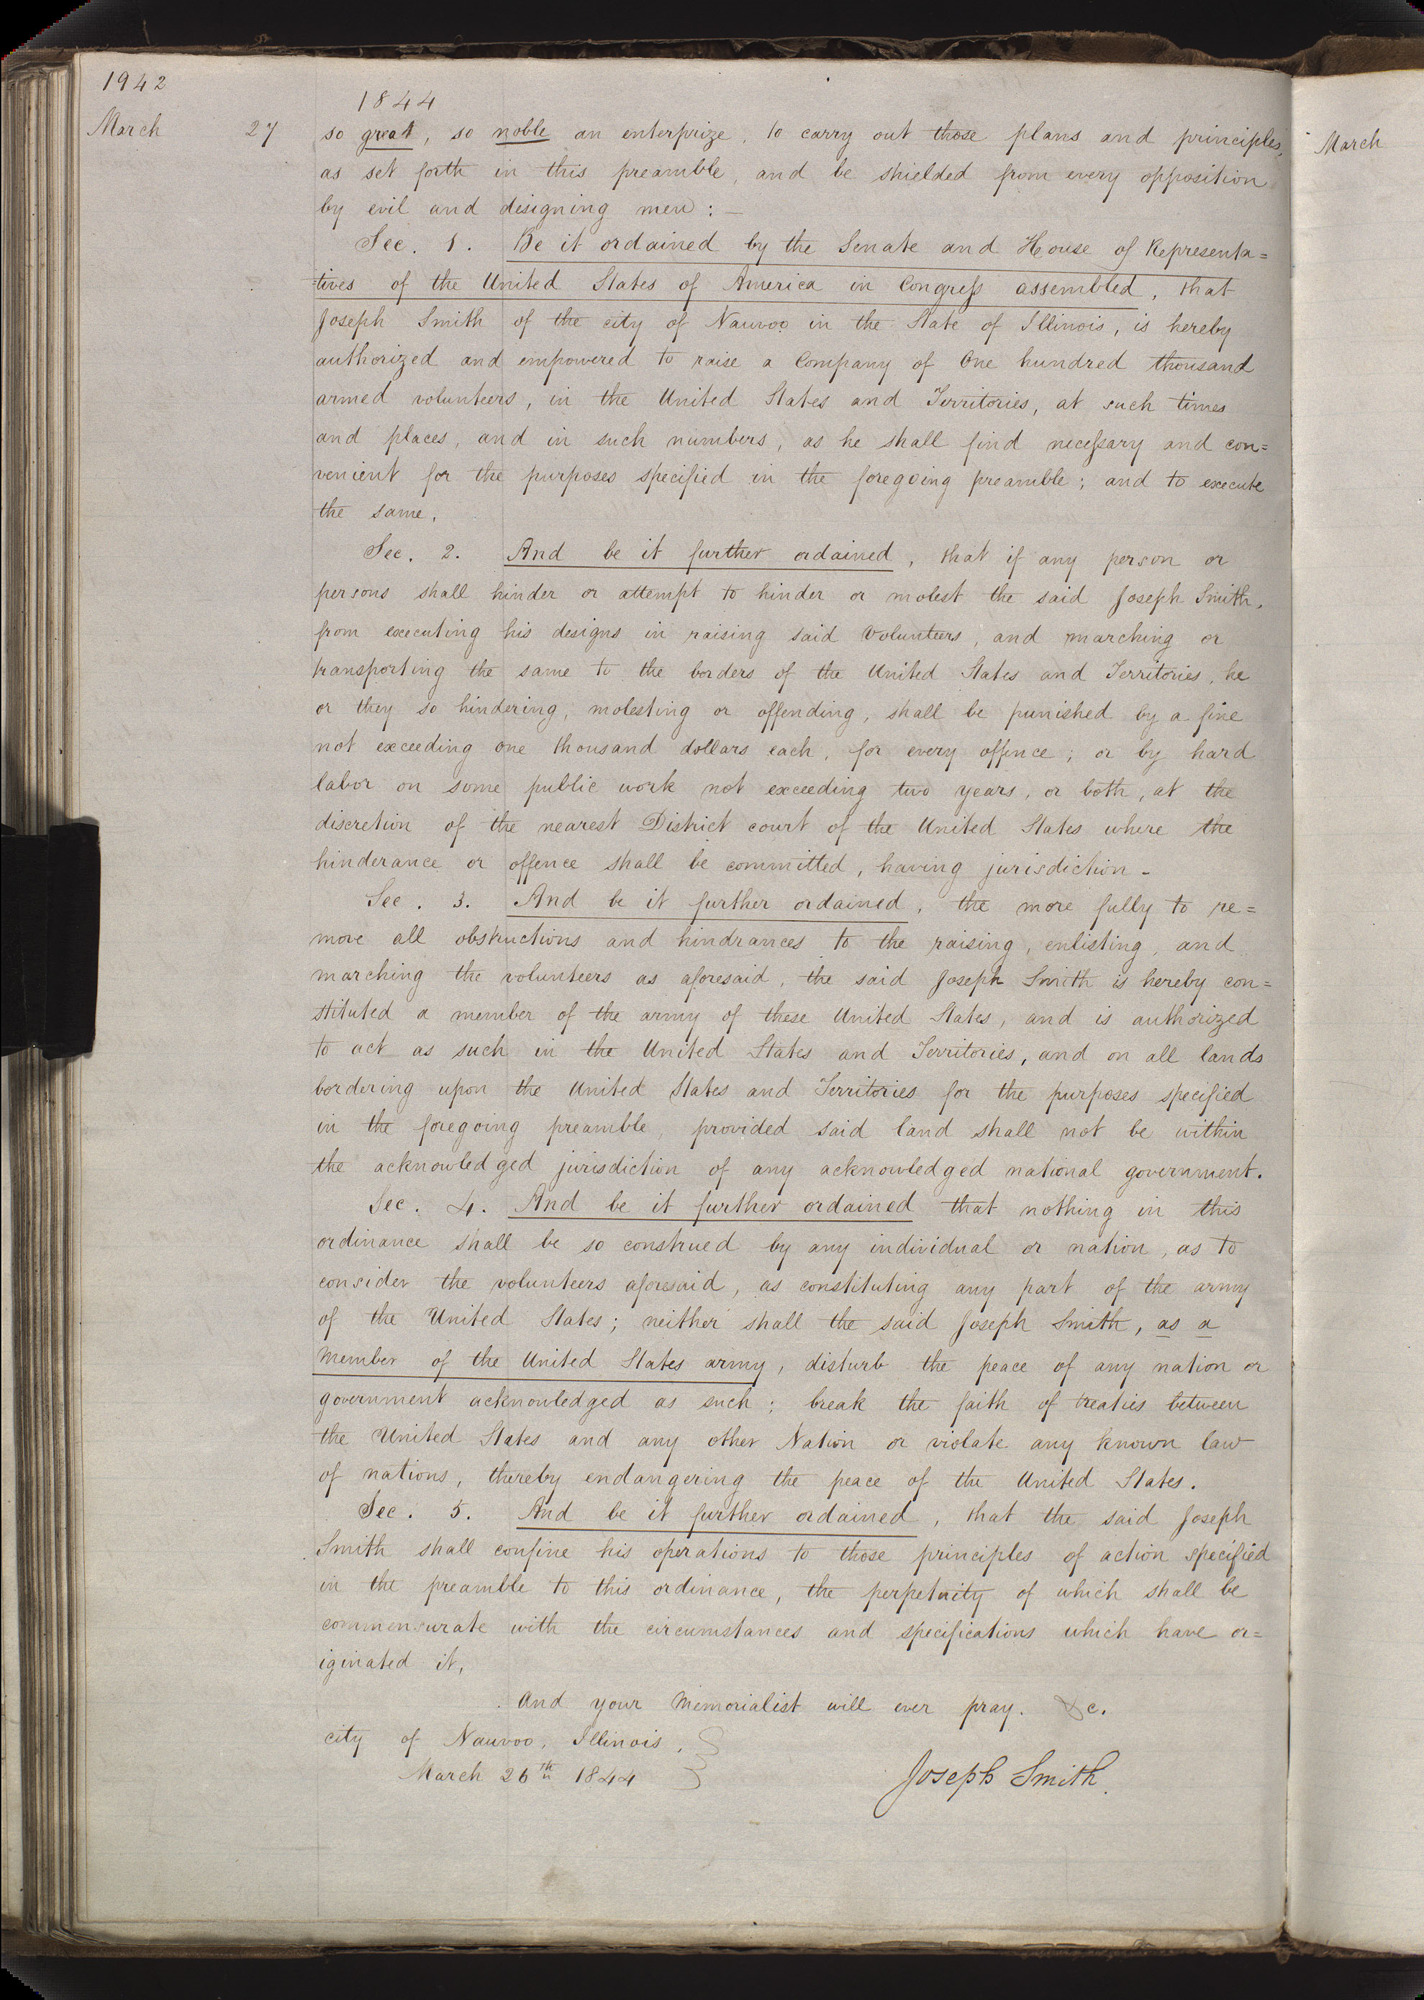 1942
1844
March 27 so great, so noble an enterprize, to carry out those plans and principles,
as set forth in this preamble, and be shielded from every opposition
by evil and designing men: —
Sec. 1. Be it ordained by the Senate and House of Representa=
tives of the United States of America in Congress assembled, that
Joseph Smith of the city of Nauvoo in the State of Illinois, is hereby
authorized and empowered to raise a Company of One hundred thousand
armed volunteers, in the United States and Territories, at such times
and places, and in such numbers, as he shall find necessary and con=
venient for the purposes specified in the foregoing preamble; and to execute
the same.
Sec. 2. And be it further ordained, that if any person or
persons shall hinder or attempt to hinder or molest the said Joseph Smith,
from executing his designs in raising said volunteers, and marching or
transporting the same to the borders of the United States and Territories, he
or they so hindering, molesting or offending, shall be punished by a fine
not exceeding one thousand dollars each, for every offence; or by hard
labor on some public work not exceeding two years, or both, at the
discretion of the nearest District court of the United States where the
hinderance or offence shall be committed, having jurisdiction.
Sec. 3. And be it further ordained, the more fully to re=
move all obstructions and hindrances to the raising, enlisting, and
marching the volunteers as aforesaid, the said Joseph Smith is hereby con=
stituted a member of the army of these United States, and is authorized
to act as such in the United States and Territories, and on all lands
bordering upon the United States and Territories for the purposes specified
in the foregoing preamble, provided said land shall not be within
the acknowledged jurisdiction of any acknowledged national government.
Sec. 4. And be it further ordained that nothing in this
ordinance shall be so construed by any individual or nation, as to
consider the volunteers aforesaid, as constituting any part of the army
of the United States; neither shall the said Joseph Smith, as a
member of the United States army, disturb the peace of any nation or
government acknowledged as such; break the faith of treaties between
the United States and any other Nation or violate any known law
of nations, thereby endangering the peace of the United States.
Sec. 5. And be it further ordained, that the said Joseph
Smith shall confine his operations to those principles of action specified
in the preamble to this ordinance, the perpetuity of which shall be
commensurate with the circumstances and specifications which have or=
iginated it,
And your Memorialist will ever pray. &c.
city of Nauvoo, Illinois,
March 26th 1844
Joseph Smith.
March